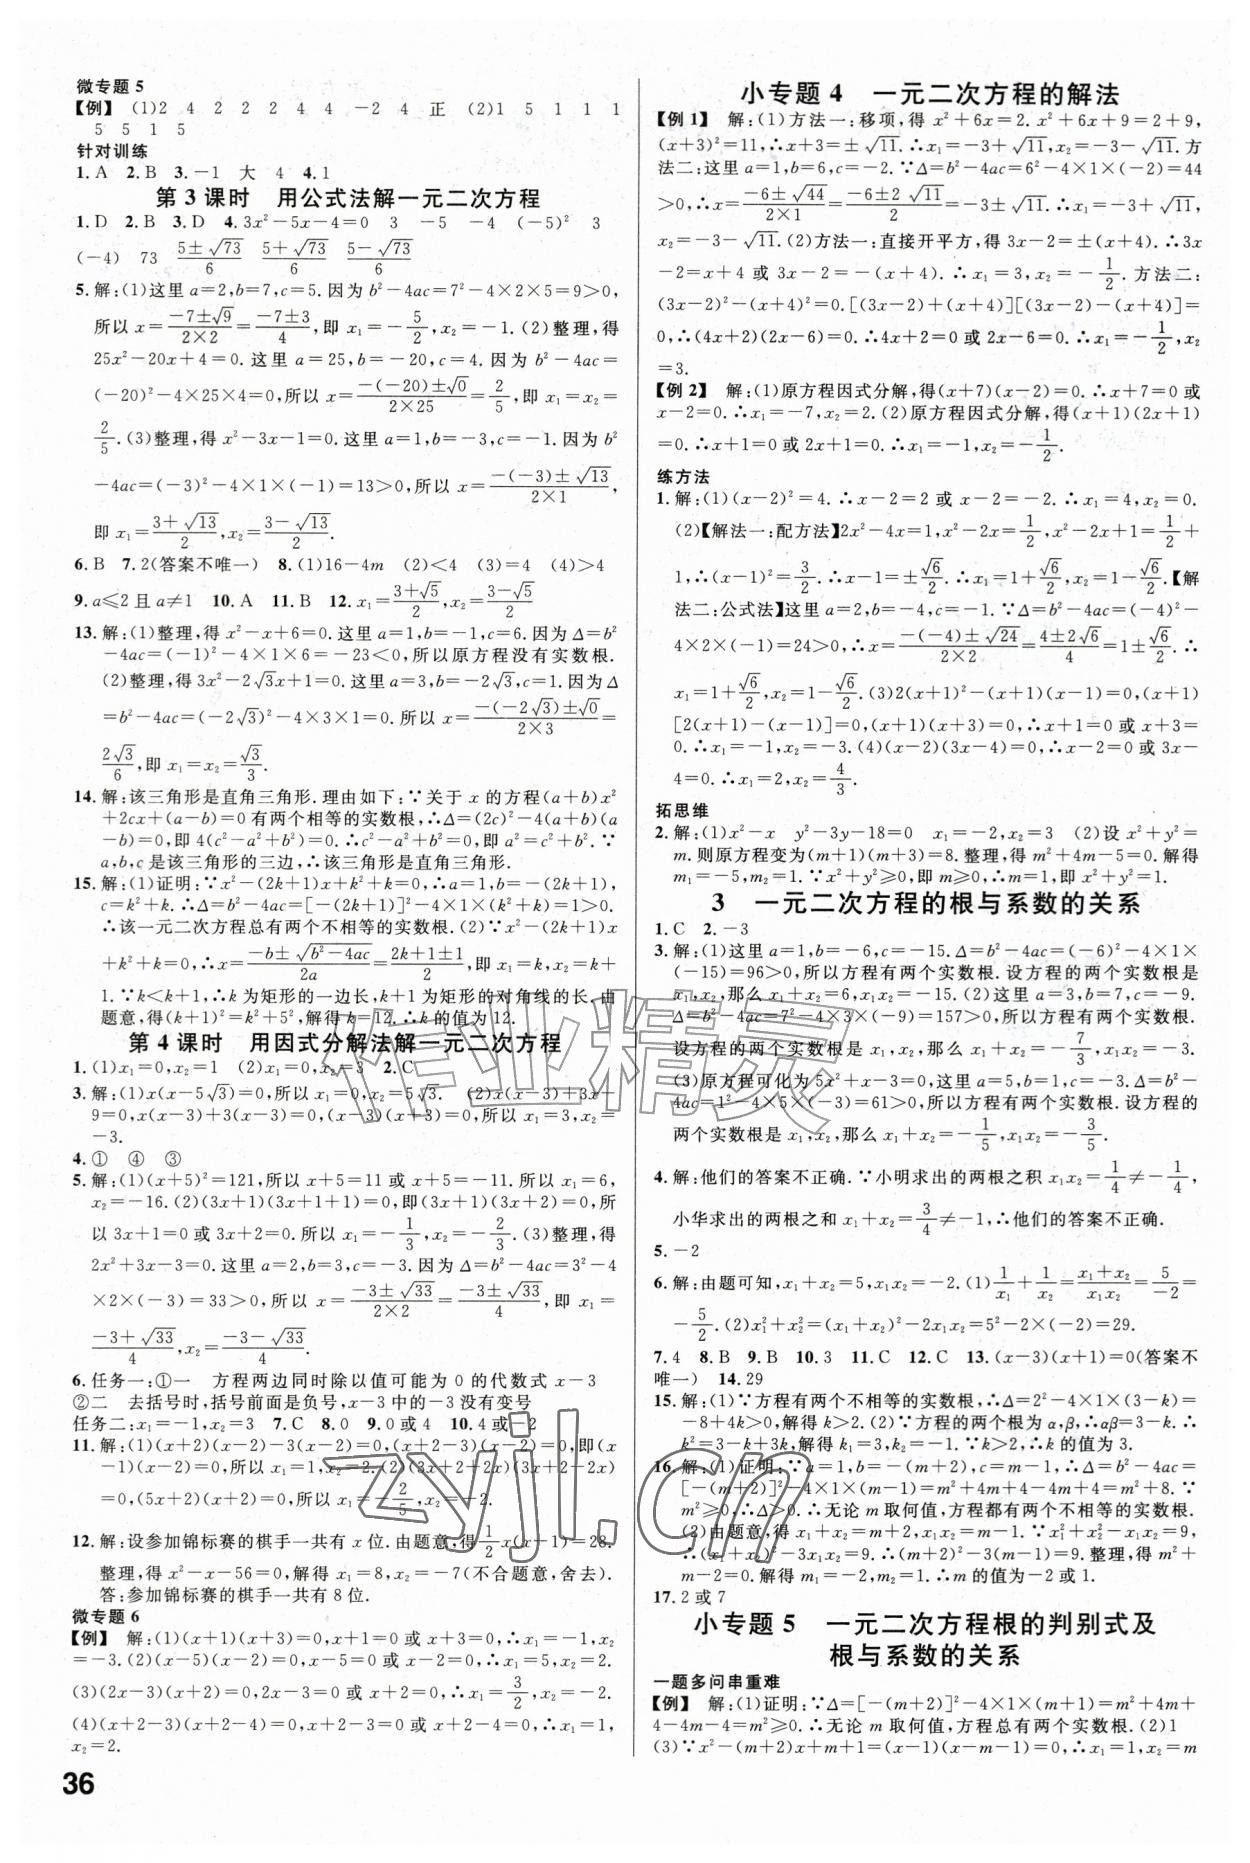 微专题 5
【例】 (1)2 4 2 2 2 4 4 －2 4 正 (2)1 5 1 1 1
5 5 1 5
针对训练
1. A 2. B 3. －1 大 4 4. 1
第 3 课时 用公式法解一元二次方程
1. D 2. B 3. D 4. 3x²－5x－4＝0 3 －5 －4 (－5)² 3
(－4) 73 (5±√73)/6 (5＋√73)/6 (5－√73)/6
5. 解:(1)这里 a＝2,b＝7,c＝5. 因为 b²－4ac＝7²－4×2×5＝9＞0,
所以 x＝(－7±√9)/(2×2)＝(－7±3)/4,即 x₁＝－5/2,x₂＝－1. (2)整理,得
25x²－20x＋4＝0. 这里 a＝25,b＝－20,c＝4. 因为 b²－4ac＝
(－20)²－4×25×4＝0,所以 x＝(－(－20)±√0)/(2×25)＝2/5,即 x₁＝x₂＝
2/5. (3)整理,得 x²－3x－1＝0. 这里 a＝1,b＝－3,c＝－1. 因为 b²
－4ac＝(－3)²－4×1×(－1)＝13＞0,所以 x＝(－(－3)±√13)/(2×1),
即 x₁＝(3＋√13)/2,x₂＝(3－√13)/2.
6. B 7. 2(答案不唯一) 8. (1)16－4m (2)＜4 (3)＝4 (4)＞4
9. a≤2 且 a≠1 10. A 11. B 12. x₁＝(3＋√5)/2,x₂＝(3－√5)/2
13. 解:(1)整理,得 x²－x＋6＝0. 这里 a＝1,b＝－1,c＝6. 因为 Δ＝b²
－4ac＝(－1)²－4×1×6＝－23＜0,所以原方程没有实数根.
(2)整理,得 3x²－2√3x＋1＝0. 这里 a＝3,b＝－2√3,c＝1. 因为 Δ
＝b²－4ac＝(－2√3)²－4×3×1＝0. 所以 x＝(－(－2√3)±√0)/(2×3)＝
2√3/6,即 x₁＝x₂＝√3/3.
14. 解:该三角形是直角三角形. 理由如下:∵关于 x 的方程(a＋b)x²
＋2cx＋(a－b)＝0 有两个相等的实数根,∴Δ＝(2c)²－4(a＋b)(a
－b)＝0,即 4(c²－a²＋b²)＝0. ∴c²－a²＋b²＝0,即 a²＝c²＋b². ∵
a,b,c 是该三角形的三边,∴该三角形是直角三角形.
15. 解:(1)证明:∵x²－(2k＋1)x＋k²＋k＝0,∴a＝1,b＝－(2k＋1),
c＝k²＋k. ∴Δ＝b²－4ac＝[－(2k＋1)]²－4×1×(k²＋k)＝1＞0,
∴该一元二次方程总有两个不相等的实数根. (2)∵x²－(2k＋1)x
＋k²＋k＝0,∴x＝(－b±√(b²－4ac))/2a＝(2k＋1±1)/2,即 x₁＝k,x₂＝k＋
1. ∵k＜k＋1,∴k 为矩形的一边长,k＋1 为矩形的对角线的长. 由
题意,得(k＋1)²＝k²＋5²,解得 k＝12. ∴k 的值为 12.
第 4 课时 用因式分解法解一元二次方程
1. (1)x₁＝0,x₂＝1 (2)x₁＝0,x₂＝3 2. C
3. 解:(1)x(x－5√3)＝0,所以 x₁＝0,x₂＝5√3. (2)x(x－3)＋3x－
9＝0,x(x－3)＋3(x－3)＝0,(x－3)(x＋3)＝0,所以 x₁＝3,x₂＝
－3.
4. ① ④ ③
5. 解:(1)(x＋5)²＝121,所以 x＋5＝11 或 x＋5＝－11. 所以 x₁＝6,
x₂＝－16. (2)(3x＋1)(3x＋1＋1)＝0,即(3x＋1)(3x＋2)＝0,所
以 3x＋1＝0 或 3x＋2＝0. 所以 x₁＝－1/3,x₂＝－2/3. (3)整理,得
2x²＋3x－3＝0. 这里 a＝2,b＝3,c＝－3. 因为 Δ＝b²－4ac＝3²－4
×2×(－3)＝33＞0,所以 x＝(－3±√33)/(2×2)＝(－3±√33)/4,即 x₁＝
(－3＋√33)/4,x₂＝(－3－√33)/4.
6. 任务一:①一 方程两边同时除以值可能为 0 的代数式 x－3
②二 去括号时,括号前面是负号,x－3 中的－3 没有变号
任务二:x₁＝－1,x₂＝3 7. C 8. 0 9. 0 或 4 10. 4 或－2
11. 解:(1)(x＋2)(x－2)－3(x－2)＝0,(x＋2－3)(x－2)＝0,即(x
－1)(x－2)＝0,所以 x₁＝1,x₂＝2. (2)(3x＋2＋2x)(3x＋2－2x)
＝0,(5x＋2)(x＋2)＝0,所以 x₁＝－2/5,x₂＝－2.
12. 解:设参加锦标赛的棋手一共有 x 位. 由题意,得1/2x(x－1)＝28.
整理,得 x²－x－56＝0,解得 x₁＝8,x₂＝－7(不合题意,舍去).
答:参加锦标赛的棋手一共有 8 位.
微专题 6
【例】 解:(1)(x＋1)(x＋3)＝0,x＋1＝0 或 x＋3＝0,∴x₁＝－1,x₂
＝－3. (2)(x－5)(x－2)＝0,x－5＝0 或 x－2＝0,∴x₁＝5,x₂＝2.
(3)(2x－3)(x＋2)＝0,2x－3＝0 或 x＋2＝0,∴x₁＝3/2,x₂＝－2.
(4)(x＋2－3)(x＋2－4)＝0,x－1＝0 或 x－2＝0,∴x₁＝1,
x₂＝2.
36
小专题 4 一元二次方程的解法
【例 1】 解:(1)方法一:移项,得 x²＋6x＝2. x²＋6x＋9＝2＋9,
(x＋3)²＝11,∴x＋3＝±√11,∴x₁＝－3＋√11,x₂＝－3－√11. 方
法二:这里 a＝1,b＝6,c＝－2. ∵Δ＝b²－4ac＝6²－4×1×(－2)＝44
＞0,∴x＝(－6±√44)/(2×1)＝(－6±2√11)/2＝－3±√11,∴x₁＝－3＋√11,
x₂＝－3－√11. (2)方法一:直接开平方,得 3x－2＝±(x＋4). ∴3x
－2＝x＋4 或 3x－2＝－(x＋4). ∴x₁＝3,x₂＝－1/2. 方法二:
(3x－2)²－(x＋4)²＝0. [(3x－2)＋(x＋4)][(3x－2)－(x＋4)]＝
0,∴(4x＋2)(2x－6)＝0. ∴4x＋2＝0 或 2x－6＝0. ∴x₁＝－1/2,x₂
＝3.
【例 2】 解:(1)原方程因式分解,得(x＋7)(x－2)＝0. ∴x＋7＝0 或
x－2＝0. ∴x₁＝－7,x₂＝2. (2)原方程因式分解,得(x＋1)(2x＋1)
＝0. ∴x＋1＝0 或 2x＋1＝0. ∴x₁＝－1,x₂＝－1/2.
练方法
1. 解:(1)(x－2)²＝4. ∴x－2＝2 或 x－2＝－2. ∴x₁＝4,x₂＝0.
(2)【解法一:配方法】2x²－4x＝1,x²－2x＝1/2,x²－2x＋1＝1/2＋
1,∴(x－1)²＝3/2. ∴x－1＝±√6/2. ∴x₁＝1＋√6/2,x₂＝1－√6/2. 【解
法二:公式法】这里 a＝2,b＝－4,c＝－1. ∵Δ＝b²－4ac＝(－4)²－
4×2×(－1)＝24＞0,∴x＝(－(－4)±√24)/(2×2)＝(4±2√6)/4＝1±√6/2. ∴
x₁＝1＋√6/2,x₂＝1－√6/2. (3)2(x＋1)²－(x－1)(x＋1)＝0,(x＋1)
[2(x＋1)－(x－1)]＝0,(x＋1)(x＋3)＝0,∴x＋1＝0 或 x＋3＝
0. ∴x₁＝－1,x₂＝－3. (4)(x－2)(3x－4)＝0. ∴x－2＝0 或 3x－
4＝0. ∴x₁＝2,x₂＝4/3.
拓思维
2. 解:(1)x²－x y²－3y－18＝0 x₁＝－2,x₂＝3 (2)设 x²＋y²＝
m. 则原方程变为(m＋1)(m＋3)＝8. 整理,得 m²＋4m－5＝0. 解得
m₁＝－5,m₂＝1. ∵x²＋y²≥0,即 m≥0,∴m＝1,即 x²＋y²＝1.
3 一元二次方程的根与系数的关系
1. C 2. －3
3. 解:(1)这里 a＝1,b＝－6,c＝－15. Δ＝b²－4ac＝(－6)²－4×1×
(－15)＝96＞0,所以方程有两个实数根. 设方程的两个实数根是
x₁,x₂,那么 x₁＋x₂＝6,x₁x₂＝－15. (2)这里 a＝3,b＝7,c＝－9.
Δ＝b²－4ac＝7²－4×3×(－9)＝157＞0,所以方程有两个实数根.
设方程的两个实数根是 x₁,x₂,那么 x₁＋x₂＝－7/3,x₁x₂＝－3.
(3)原方程可化为 5x²＋x－3＝0. 这里 a＝5,b＝1,c＝－3. Δ＝b²－
4ac＝1²－4×5×(－3)＝61＞0,所以方程有两个实数根. 设方程的
两个实数根是 x₁,x₂,那么 x₁＋x₂＝－1/5,x₁x₂＝－3/5.
4. 解:他们的答案不正确. ∵小明求出的两根之积 x₁x₂＝1/4≠－1/4,
小华求出的两根之和 x₁＋x₂＝3/4≠－1,∴他们的答案不正确.
5. －2
6. 解:由题可知,x₁＋x₂＝5,x₁x₂＝－2. (1)1/x₁＋1/x₂＝(x₁＋x₂)/(x₁x₂)＝5/(－2)＝
－5/2. (2)x₁²＋x₂²＝(x₁＋x₂)²－2x₁x₂＝5²－2×(－2)＝29.
7. 4 8. B 9. B 10. 3 11. C 12. C 13. (x－3)(x＋1)＝0(答案不
唯一) 14. 29
15. 解:(1)∵方程有两个不相等的实数根,∴Δ＝2²－4×1×(3－k)＝
－8＋4k＞0,解得 k＞2. (2)∵方程的两个根为 α,β,∴αβ＝3－k. ∴
k²＝3－k＋3k,解得 k₁＝3,k₂＝－1(舍去). ∴k 的值为 3.
16. 解:(1)证明:∵a＝1,b＝－(m＋2),c＝m－1,∴Δ＝b²－4ac＝
[－(m＋2)]²－4×1×(m－1)＝m²＋4m＋4－4m＋4＝m²＋8. ∵
m²≥0,∴Δ＞0. ∴无论 m 取何值,方程都有两个不相等的实数根.
(2)由题意,得 x₁＋x₂＝m＋2,x₁x₂＝m－1. ∵x₁²＋x₂²－x₁x₂＝9,
∴(x₁＋x₂)²－3x₁x₂＝9. ∴(m＋2)²－3(m－1)＝9. 整理,得 m²＋
m－2＝0. 解得 m₁＝－2,m₂＝1. ∴m 的值为－2 或 1.
17. 2 或 7
小专题 5 一元二次方程根的判别式及
根与系数的关系
一题多问串重难
【例】 解:(1)证明:∵Δ＝[－(m＋2)]²－4×1×(m＋1)＝m²＋4m＋
4－4m－4＝m²≥0. ∴无论 m 取何值,方程总有两个实数根. (2)1
(3)∵x²－(m＋2)x＋m＋1＝0,∴(x－1)(x－m－1)＝0. ∴x₁＝1,x₂＝m
作业精灵
zyjl.cn